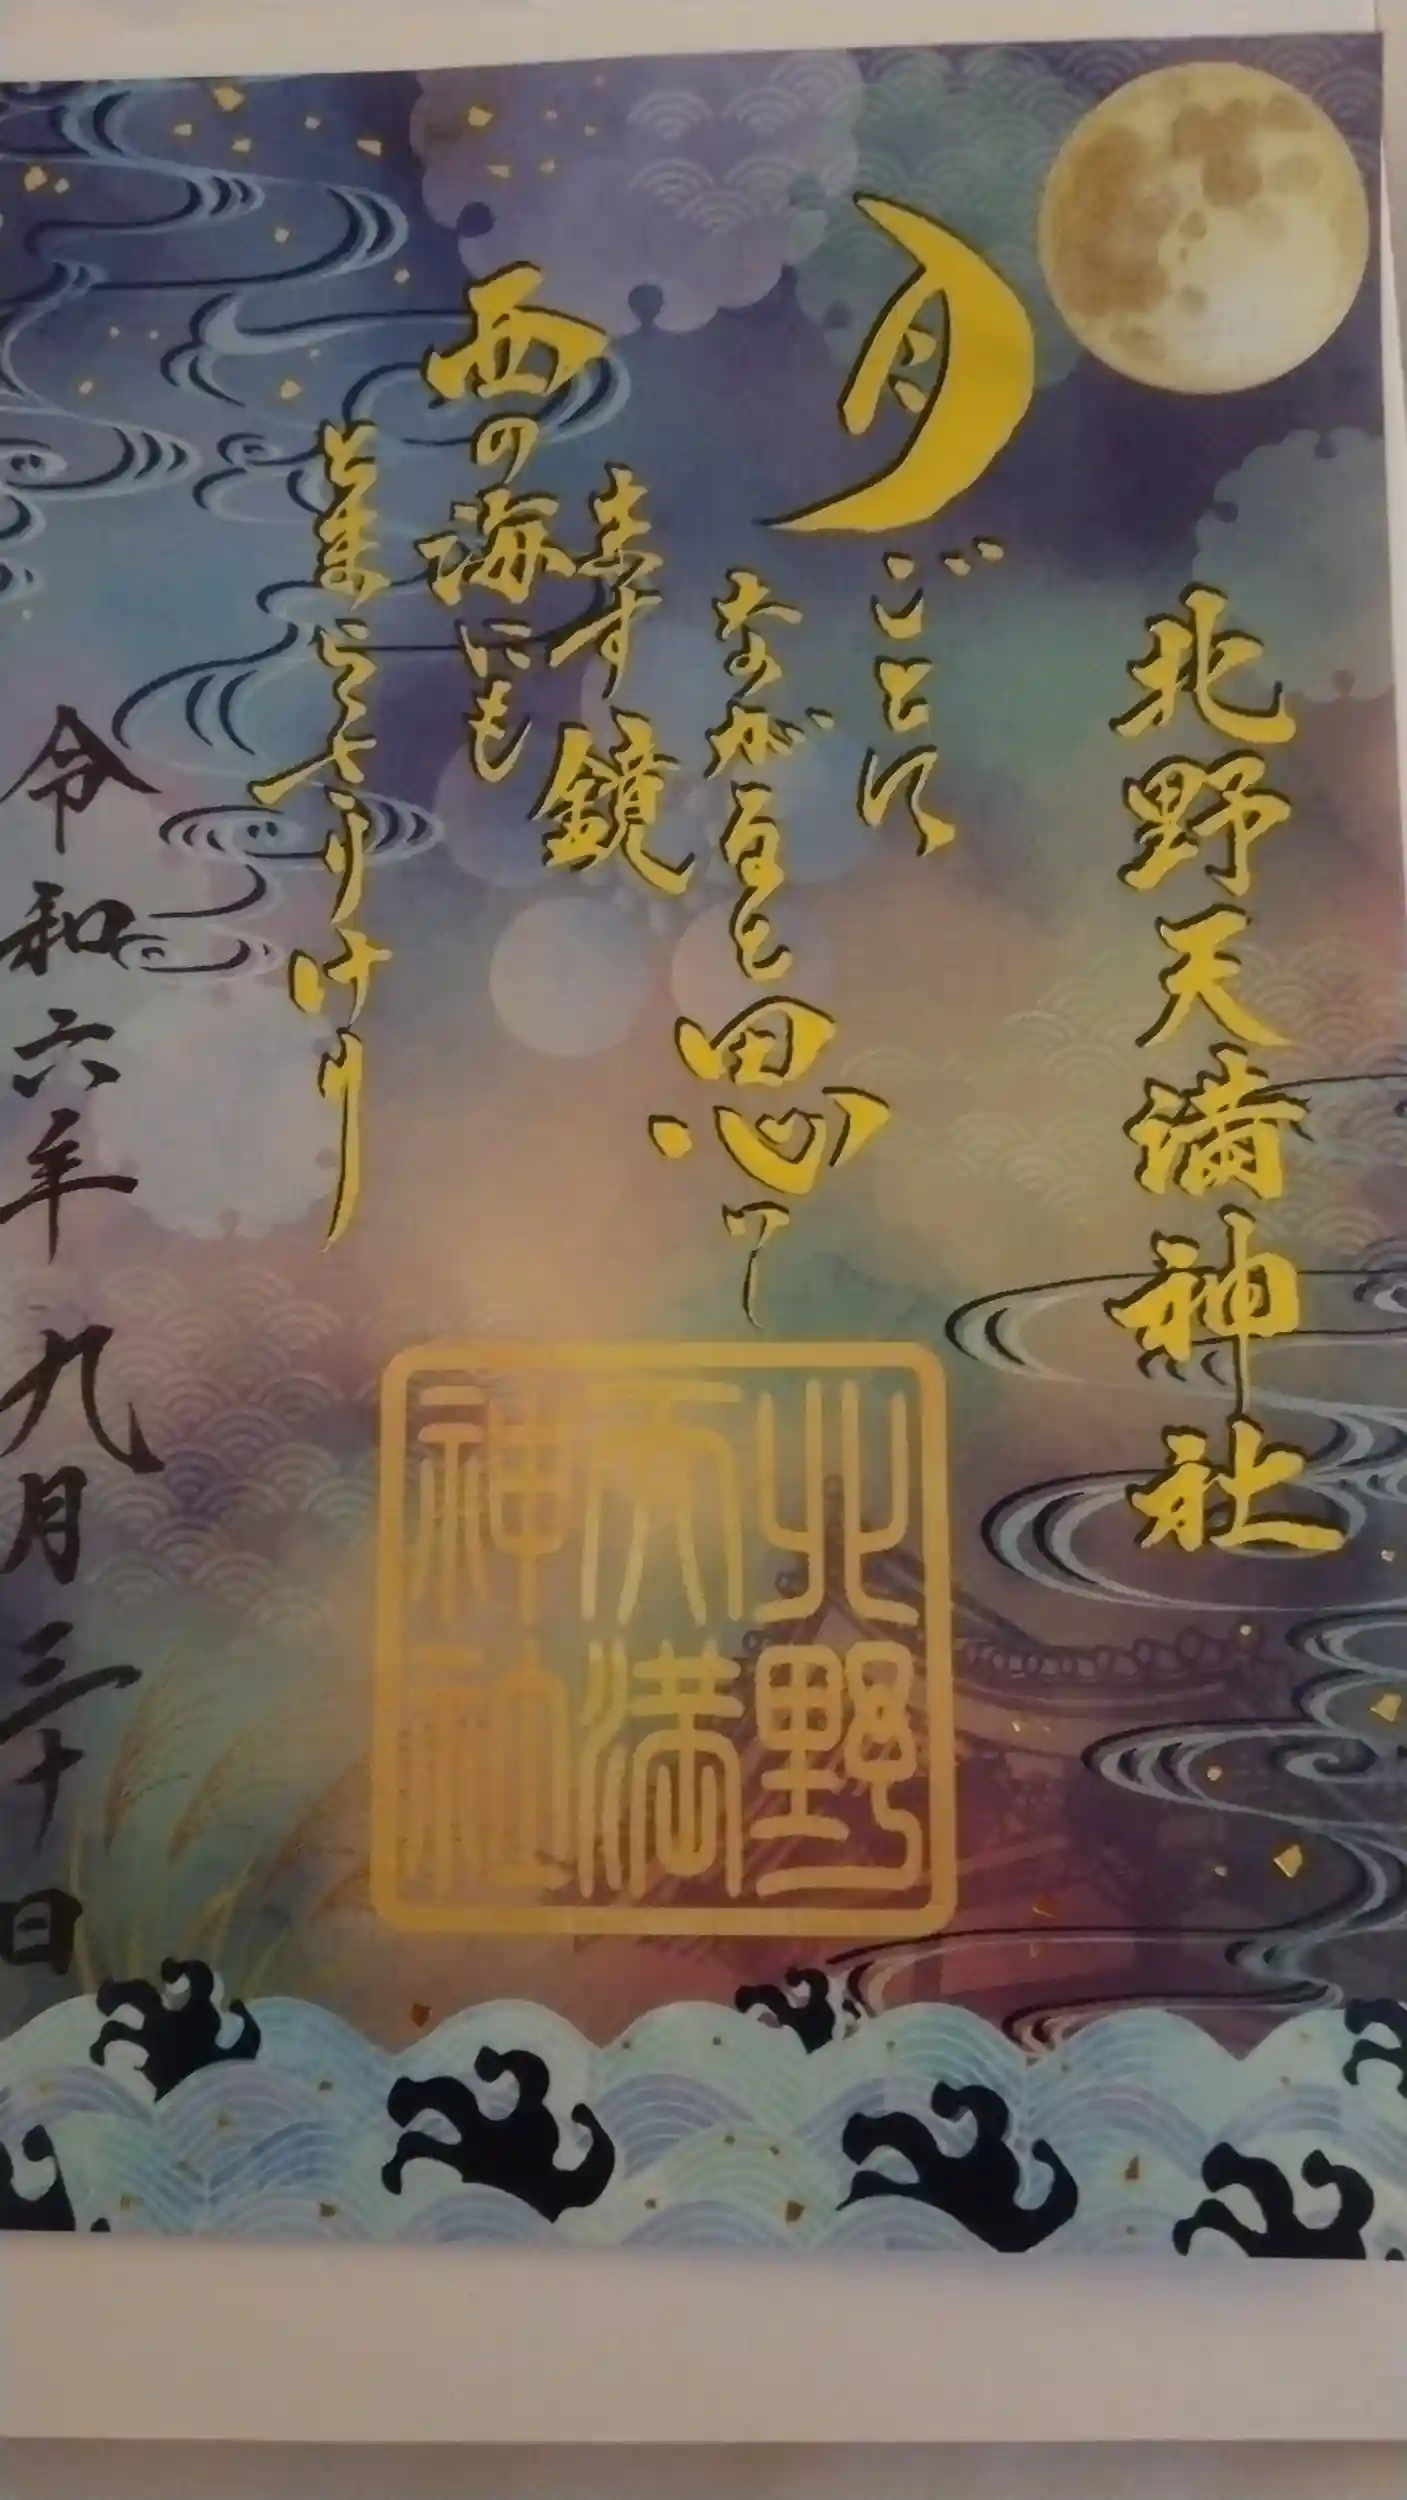 北野天満神社
月ごとに
ながると思ひし
ます鏡
西の海にも
とまらざりけり
令和六年九月三十日
北野
天満
神社